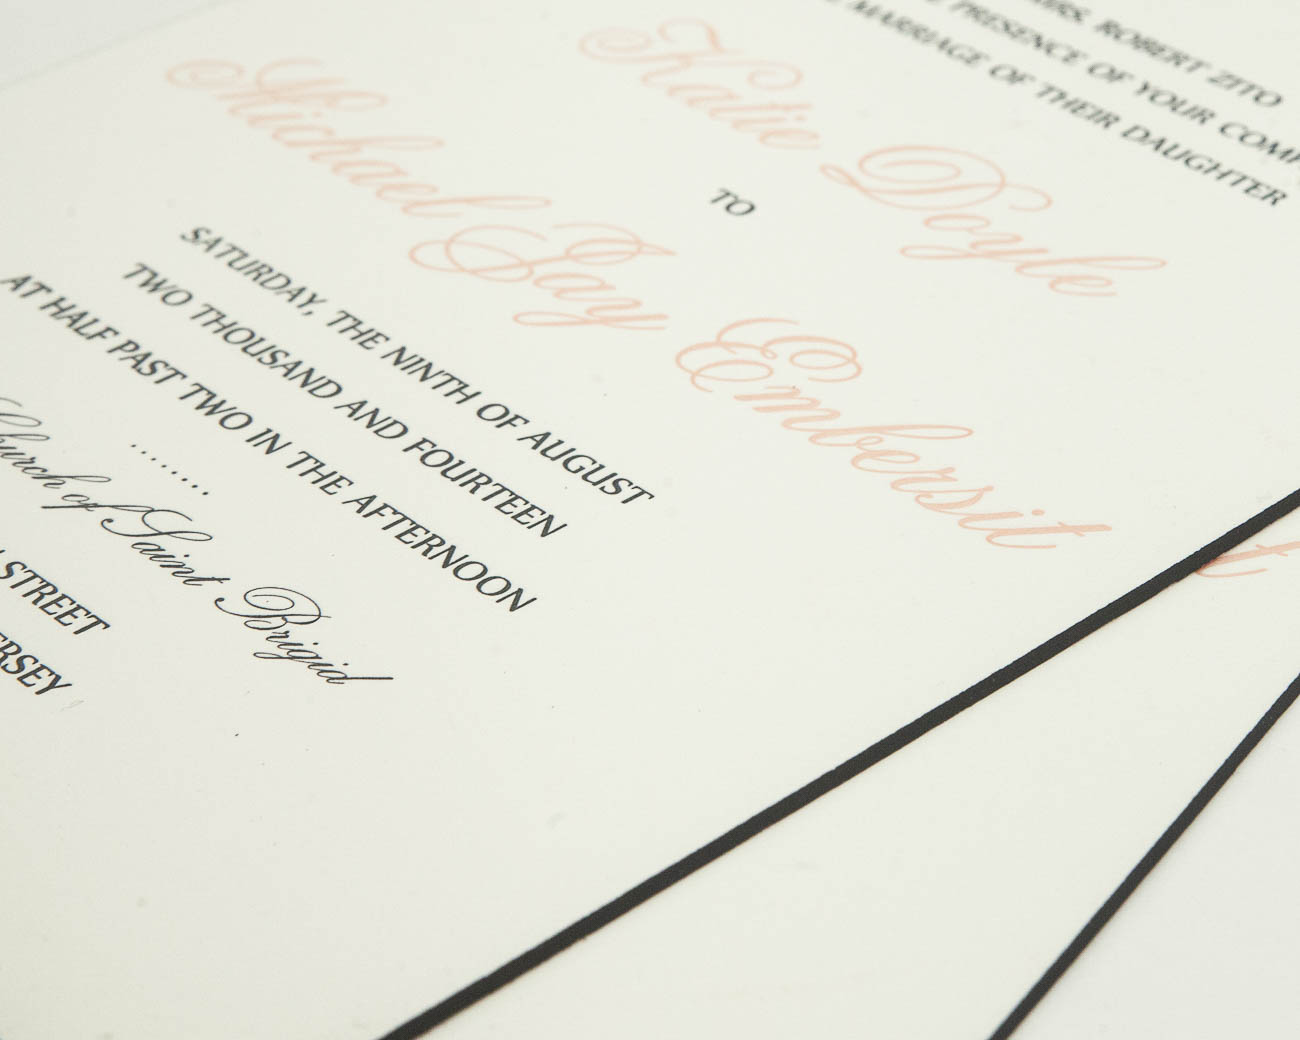 MRS. ROBERT ZITO
PRESENCE OF YOUR
MARRIAGE OF THEIR DAUGHTER
Katie Doyle
TO
Michael Jay Embersit
SATURDAY, THE NINTH OF AUGUST
TWO THOUSAND AND FOURTEEN
AT HALF PAST TWO IN THE AFTERNOON
.......
Church of Saint Brigid
STREET
ERSEY
t